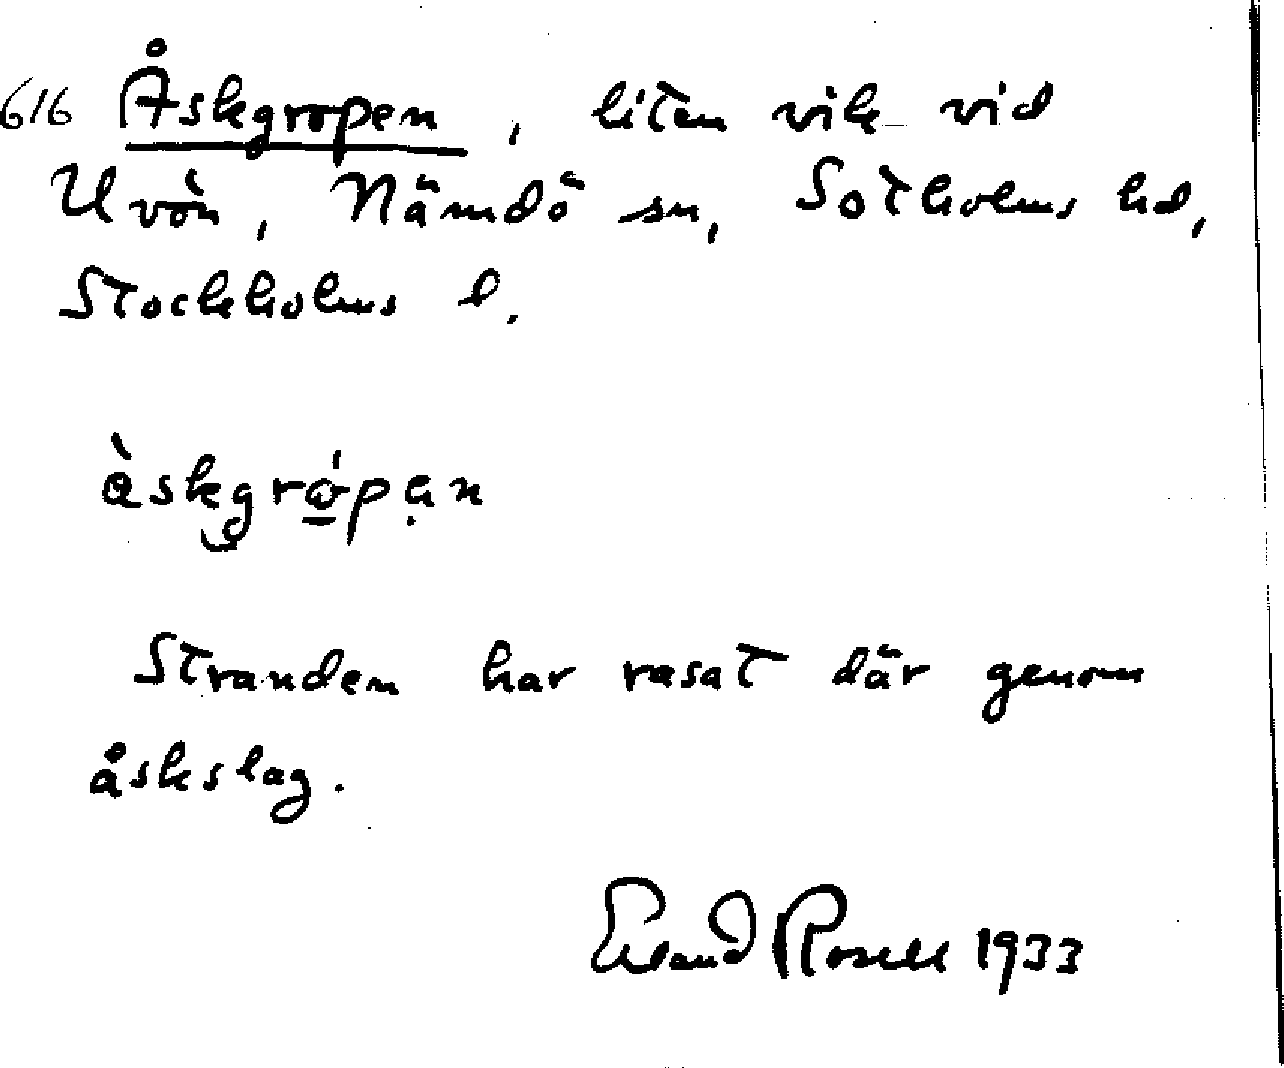 616 Åskgropen, liten vik vid
Uvön, Nämdö sn, Sotholms hd,
Stockholms l.
àskgró̲pẹn
Stranden har rasat där genom
åskslag.
Erland Rosell 1933